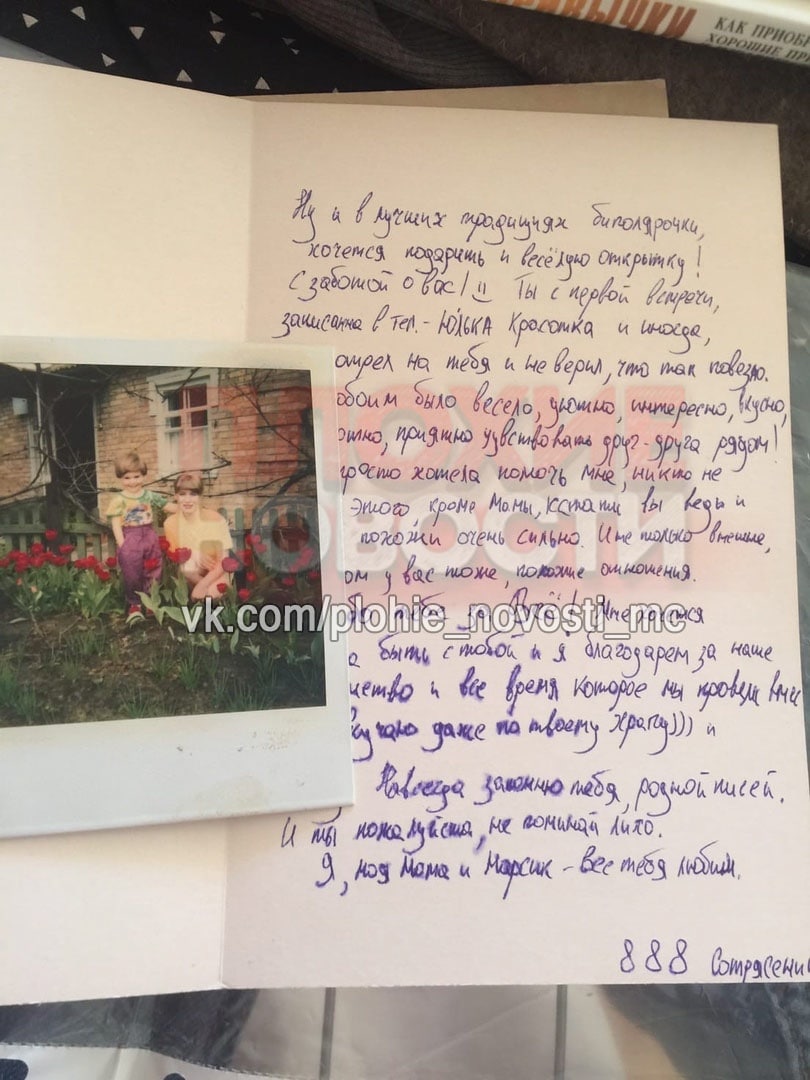 КАК ПРИОБР
ХОРОШИЕ ПРИ
Ну и в лучших традициях биполярочки,
хочется подарить и весёлую открытку!
С заботой о вас! Ты с первой встречи,
записанна в тел. - ЮЛЬКА Красотка и иногда,
отрел на тебя и не верил, что так повезло.
обоим было весело, уютно, интересно, вкусно,
приятно чувствовать друг-друга рядом!
росто хотела помочь мне, никто не
этого, кроме Мамы, кстати вы ведь и
похожи очень сильно. И не только внешне,
ом у вас тоже, похожие отношения.
тебя за Всё! Мне хочется
быть с тобой и я благодарен за наше
и все время которое мы провели вме
кучаю даже по твоему храпу))) и
Навсегда запомню тебя, родной писей.
И ты пожалуйста, не поминай лихо.
Я, моя Мама и Марсик - все тебя любим.
888 Сотрясени
ПЛОХИЕ
НОВОСТИ
vk.com/plohie_novosti_mc